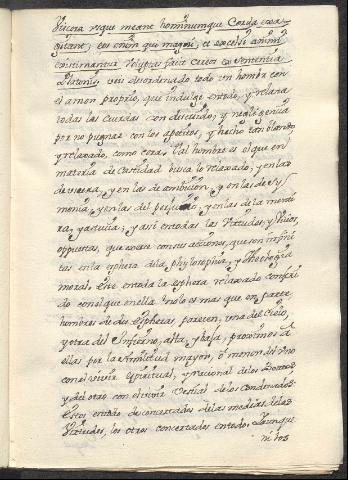 Viscera usque meant hominumque Corda exa-
gitant, eos enim qui magni, et excelsi animi
existimantur Voluptas facit cereos ex sententia
Platonis, veis desordenado todo un hombre con
el amor proprio, que indulge entodo, y relaxa
todas las Cuerdas con descuido; y negligencia
por no pugnar con los apetitos, y hacho tan blando
y relaxado, como cera. Val hombre es el que en
materia de Castidad busca lo relaxado; y en las
de usura, y en las de ambicion, y en las de sy-
monia, y en las del perjurio, y en las de la menti
ra, y así en todas las Virtudes, y Vicios
oppuestas, que en consus acciones, que son infini
tas en la esphera dela phylosophia, y theologia
moral. Este en toda la esphera relaxado consi
do con el que en ella no lo es mas que en parte
hombres de dos Espheras, parecen, una del Cielo,
y otra del Infierno, alta, y baja, proximos a
ellas por la similitud mayor, ó menor del uno
con el vivir Espiritual, y racional de los
y del otro con el vivir bestial de los Condenados.
Estos, en todo desconcertados de las medidas de las
Virtudes, los otros concertados en todo. Aunque
ni los